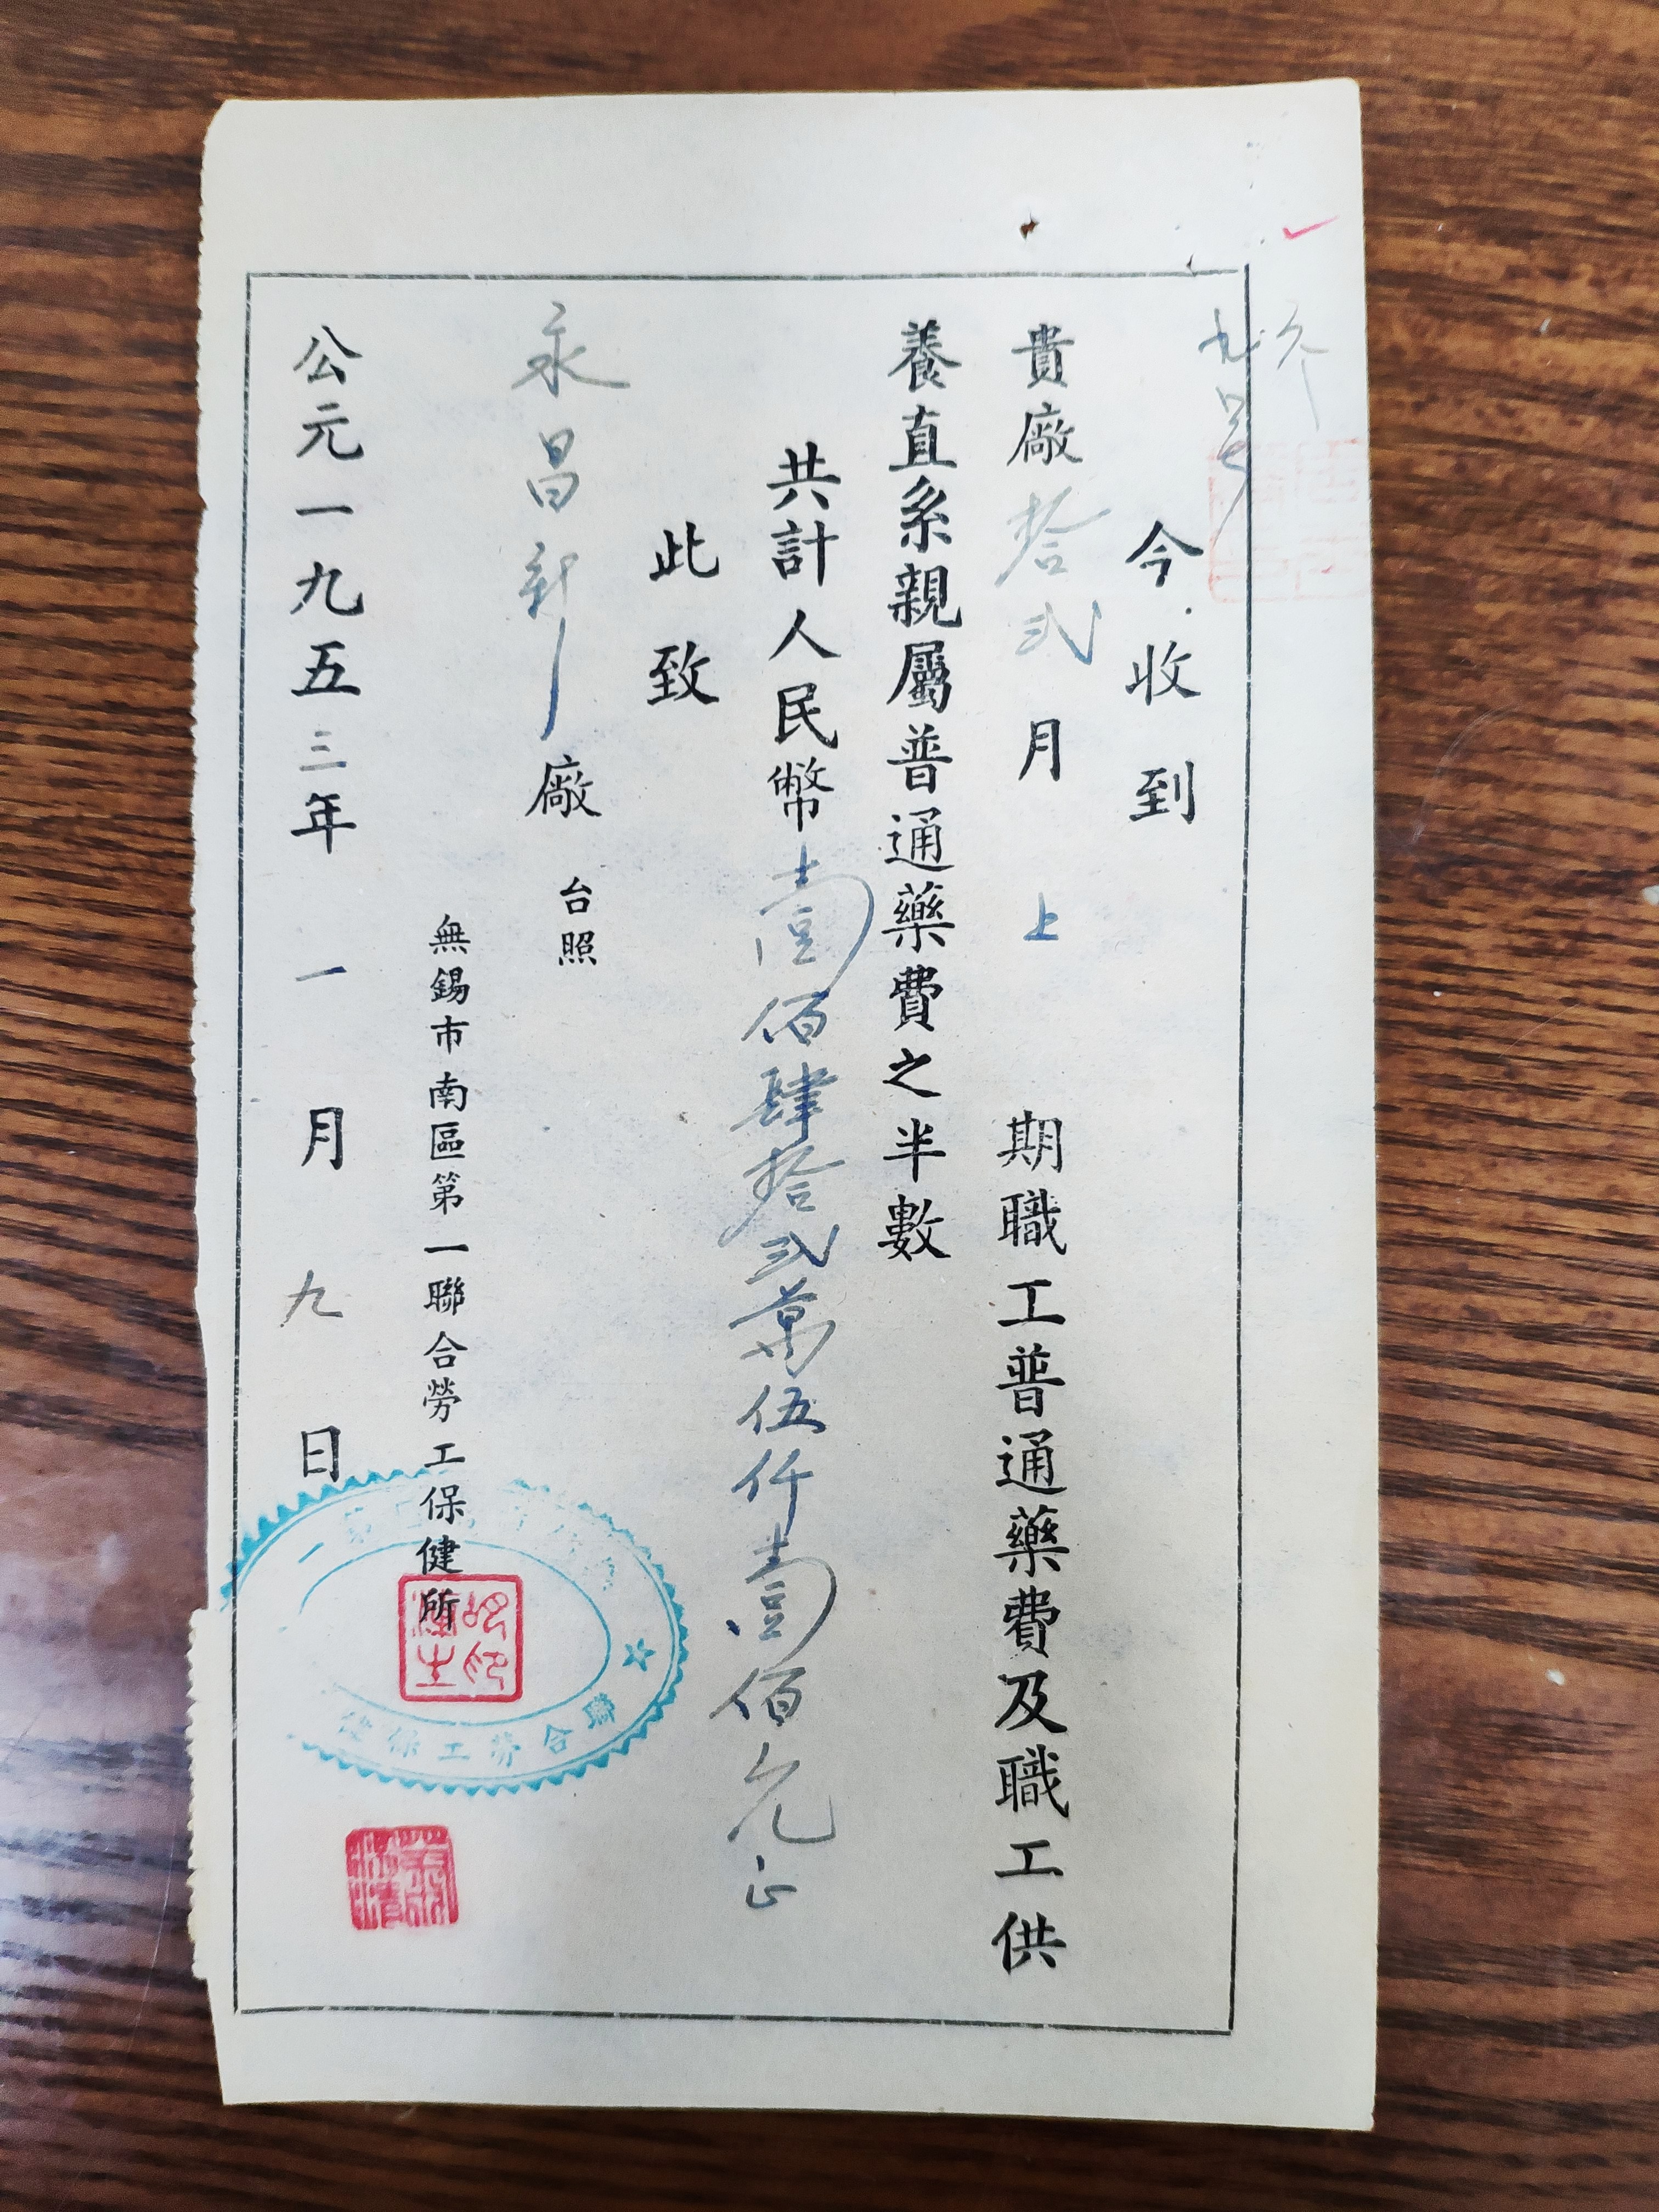 九号
今收到
貴廠拾弍月上期職工普通藥費及職工供
養直系親屬普通藥費之半數
共計人民幣壹佰肆拾弍萬伍仟壹佰元正
此致
永昌新廠台照
無錫市南區第一聯合勞工保健所
公元一九五三年一月九日
聯合勞工保健